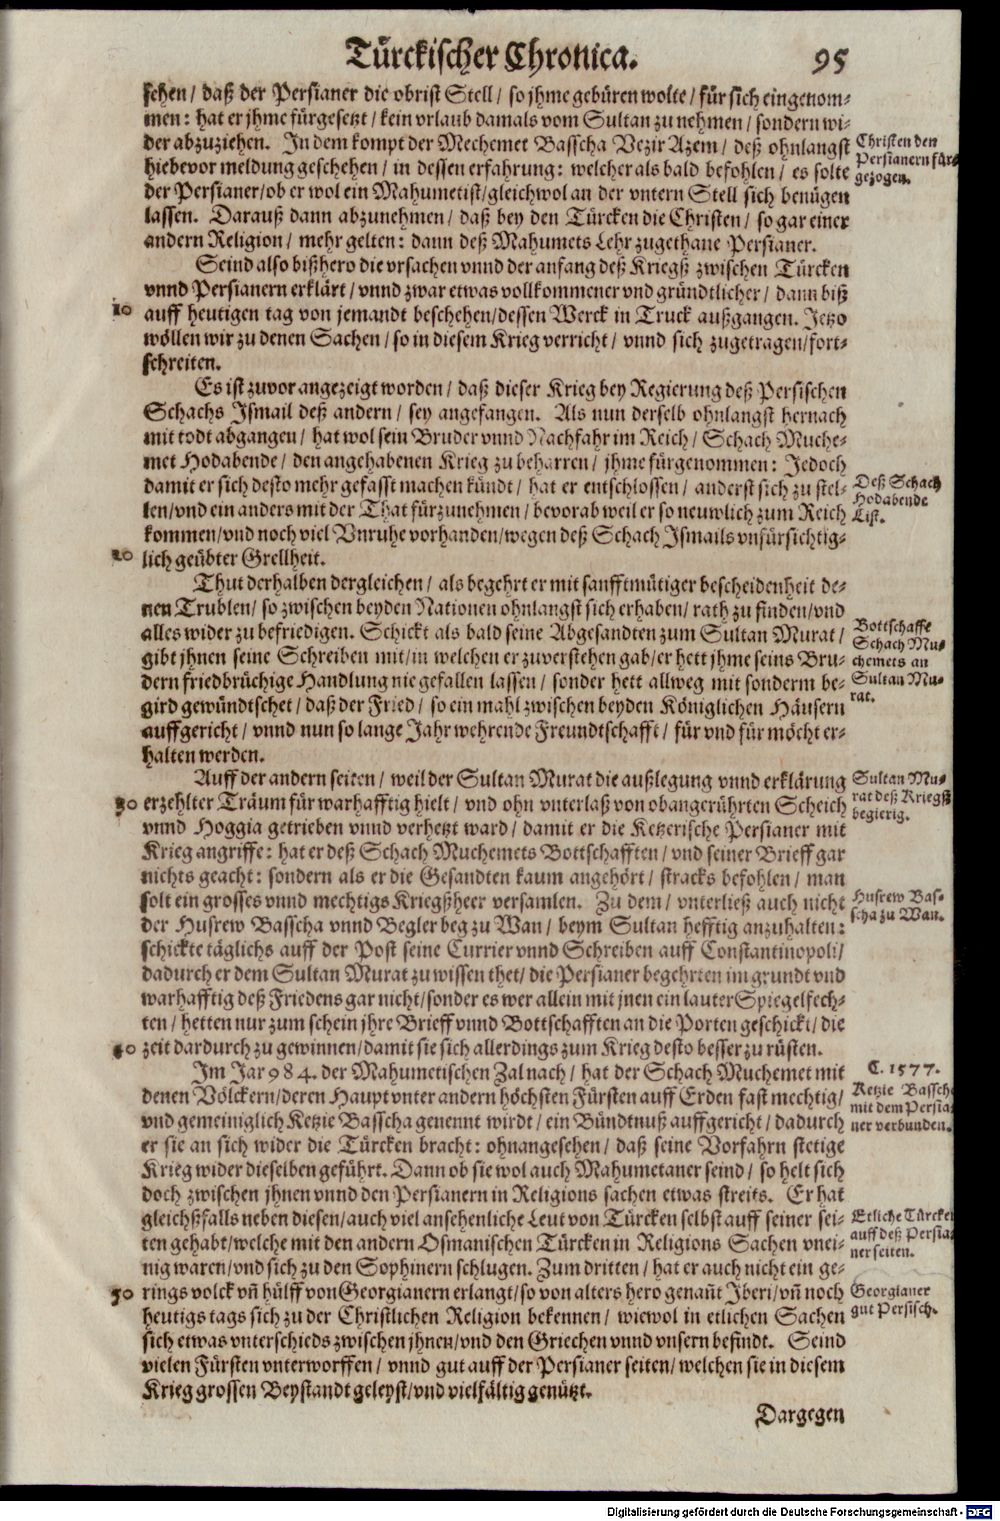 Türckischer Chronica. 95
sehen / daß der Persianer die obrist Stell / so jhme gebüren wolte / für sich eingenom-
men: hat er jhme fürgesetzt / kein vrlaub damals vom Sultan zu nehmen / sondern wi-
der abzuziehen. In dem kompt der Mechemet Basscha Vezir Azem / deß ohnlangst
hiebevor meldung geschehen / in dessen erfahrung: welcher als bald befohlen / es solte
der Persianer/ob er wol ein Mahumetist/gleichwol an der vntern Stell sich benügen
lassen. Darauß dann abzunehmen / daß bey den Türcken die Christen / so gar einer
andern Religion / mehr gelten: dann deß Mahumets Lehr zugethane Persianer.
Christen den
Persianern für-
gezogen.
Seind also bißhero die vrsachen vnnd der anfang deß Kriegß zwischen Türcken
vnnd Persianern erklärt / vnnd zwar etwas vollkommener vnd gründtlicher / dann biß
10 auff heutigen tag von jemandt beschehen/dessen Werck in Truck außgangen. Jetzo
wöllen wir zu denen Sachen / so in diesem Krieg verricht / vnnd sich zugetragen/fort-
schreiten.
Es ist zuvor angezeigt worden / daß dieser Krieg bey Regierung deß Persischen
Schachs Ismail deß andern / sey angefangen. Als nun derselb ohnlangst hernach
mit todt abgangen / hat wol sein Bruder vnnd Nachfahr im Reich / Schach Muche-
met Hodabende / den angehabenen Krieg zu beharren / jhme fürgenommen: Jedoch
damit er sich desto mehr gefasst machen kündt / hat er entschlossen / anderst sich zu stel-
len/vnd ein anders mit der That fürzunehmen / bevorab weil er so neuwlich zum Reich
kommen/vnd noch viel Vnruhe vorhanden/wegen deß Schach Ismails vnfürsichtig-
20 lich geübter Grellheit.
Deß Schach
Hodabende
List.
Thut derhalben dergleichen / als begehrt er mit sanfftmütiger bescheidenheit de-
nen Trublen/ so zwischen beyden Nationen ohnlangst sich erhaben/ rath zu finden/vnd
alles wider zu befriedigen. Schickt als bald seine Abgesandten zum Sultan Murat /
gibt jhnen seine Schreiben mit/in welchen er zuverstehen gab/er hett jhme seins Bru-
dern friedbrüchige Handlung nie gefallen lassen / sonder hett allweg mit sonderm be-
gird gewündtschet / daß der Fried / so ein mahl zwischen beyden Königlichen Häusern
auffgericht / vnnd nun so lange Jahr wehrende Freundtschafft / für vnd für möcht er-
halten werden.
Bottschafft
Schach Mu-
chemets an
Sultan Mu-
rat.
Auff der andern seiten / weil der Sultan Murat die außlegung vnnd erklärung
30 erzehlter Träum für warhafftig hielt / vnd ohn vnterlaß von obangerührten Scheich
vnnd Hoggia getrieben vnnd verhetzt ward / damit er die Ketzerische Persianer mit
Krieg angriffe: hat er deß Schach Muchemets Bottschafften / vnd seiner Brieff gar
nichts geacht: sondern als er die Gesandten kaum angehört / stracks befohlen / man
solt ein grosses vnnd mechtigs Kriegßheer versamlen. Zu dem / vnterließ auch nicht
der Husrew Basscha vnnd Beglerbeg zu Wan / beym Sultan hefftig anzuhalten:
schickte täglichs auff der Post seine Currier vnnd Schreiben auff Constantinopoli/
dadurch er dem Sultan Murat zu wissen thet/ die Persianer begehrten im grundt vnd
warhafftig deß Friedens gar nicht/sonder es wer allein mit jnen ein lauter Spiegelfech-
ten / hetten nur zum schein jhre Brieff vnnd Bottschafften an die Porten geschickt / die
40 zeit dardurch zu gewinnen/damit sie sich allerdings zum Krieg desto besser zu rüsten.
Sultan Mu-
rat deß Kriegß
begierig.
Husrew Bas-
scha zu Wan.
Im Jar 984. der Mahumetischen Zal nach / hat der Schach Muchemet mit
denen Völckern/deren Haupt vnter andern höchsten Fürsten auff Erden fast mechtig/
vnd gemeiniglich Ketzie Basscha genennt wirdt / ein Bündtnuß auffgericht / dadurch
er sie an sich wider die Türcken bracht: ohnangesehen / daß seine Vorfahrn stetige
Krieg wider dieselben geführt. Dann ob sie wol auch Mahumetaner seind / so helt sich
doch zwischen jhnen vnnd den Persianern in Religions sachen etwas streits. Er hat
gleichßfalls neben diesen/auch viel ansehenliche Leut von Türcken selbst auff seiner sei-
ten gehabt/welche mit den andern Osmanischen Türcken in Religions Sachen vnei-
nig waren/vnd sich zu den Sophinern schlugen. Zum dritten / hat er auch nicht ein ge-
50 rings volck vñ hülff von Georgianern erlangt/so von alters hero genañt Iberi/vñ noch
heutigs tags sich zu der Christlichen Religion bekennen / wiewol in etlichen Sachen
sich etwas vnterschieds zwischen jhnen/vnd den Griechen vnnd vnsern befindt. Seind
vielen Fürsten vnterworffen / vnnd gut auff der Persianer seiten/welchen sie in diesem
Krieg grossen Beystandt geleyst/vnd vielfältig genützt.
C. 1577.
Ketzie Bassche
mit dem Persia-
ner verbunden.
Etliche Türcken
auff deß Persia-
ner seiten.
Georgianer
gut Persisch.
Dargegen
Digitalisierung gefördert durch die Deutsche Forschungsgemeinschaft - DFG